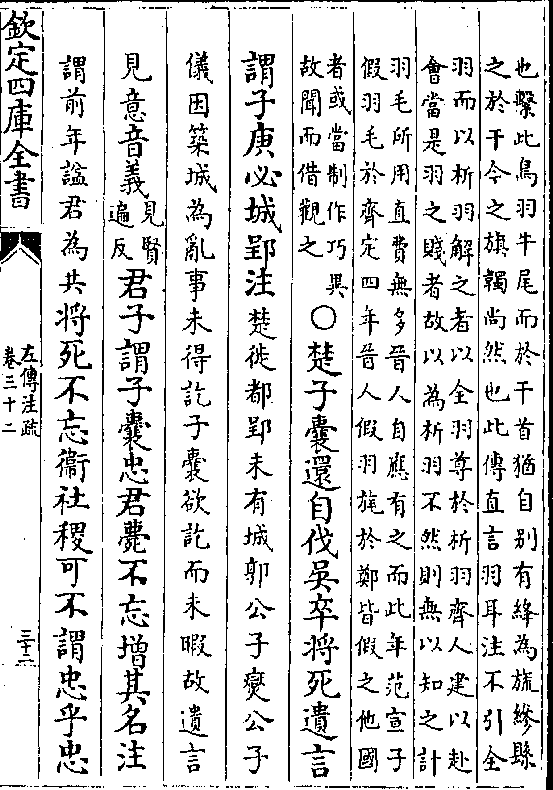 也繫此鳥羽牛尾而於干首猶自别有絳為旒縿縣
之於干今之旗髑尚然也此傳直言羽耳注不引全
羽而以析羽解之者以全羽尊於析羽齊人建以赴
會當是羽之賤者故以為析羽不然則無以知之計
羽毛所用直費無多晉人自應有之而此年范宣子
假羽毛於齊定四年晉人假羽旄於鄭皆假之他國
者或當制作巧異
故聞而借觀之
○楚子囊還自伐吳卒将死遺言
謂子庚必城郢注楚徙都郢未有城郭公子燮公子
儀因築城為亂事未得訖子囊欲訖而未暇故遺言
見意音義見賢
遍反
君子謂子囊忠君薨不忘增其名注
謂前年諡君為共将死不忘衞社稷可不謂忠乎忠
欽定四庫全書
左傳注疏
卷三十二